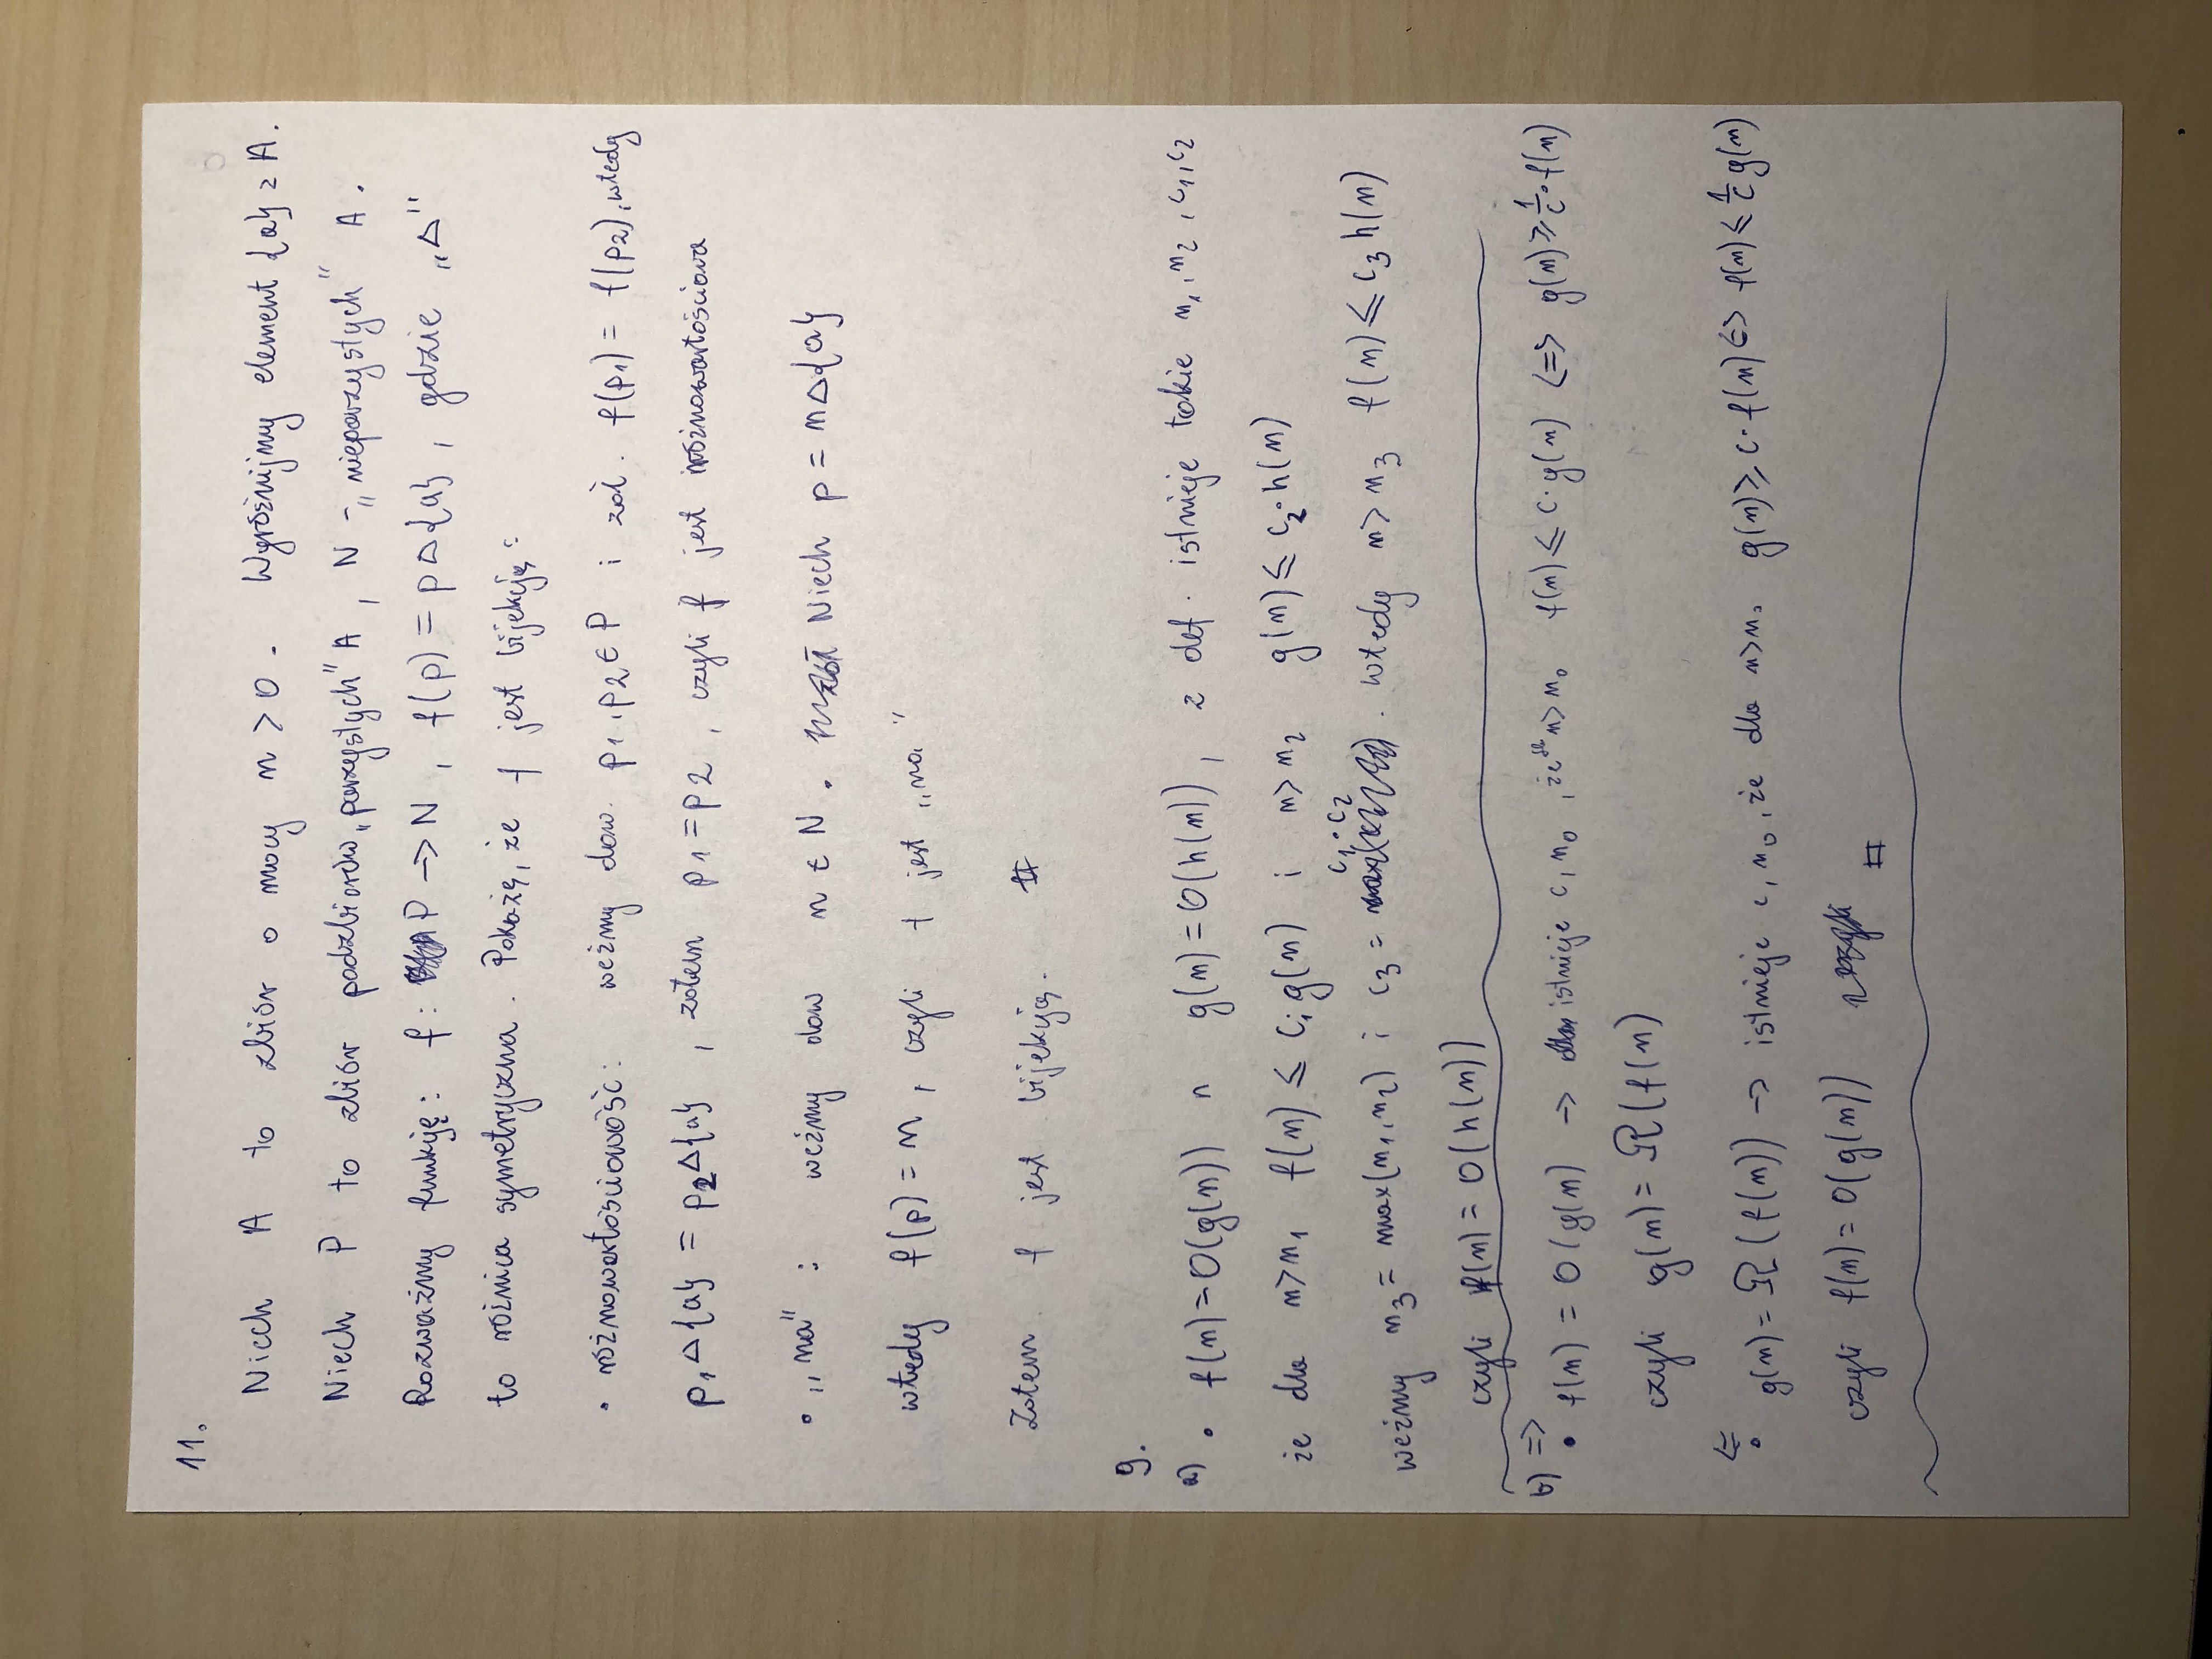 11.
Niech A to zbiór o mocy n > 0. Wyróżnijmy element {a} z A.
Niech P to zbiór podzbiorów „parzystych” A, N - „nieparzystych” A.
Rozważmy funkję: f: P → N, f(p) = p Δ {a}, gdzie „Δ”
to różnica symetryczna. Pokażę, że f jest bijekcją:
• różnowartościowość: weźmy dow. p₁, p₂ ∈ P i zał. f(p₁) = f(p₂), wtedy
p₁ Δ {a} = p₂ Δ {a}, zatem p₁ = p₂, czyli f jest różnowartościowa
• „na” : weźmy dow n ∈ N. Niech p = n Δ {a}
wtedy f(p) = n, czyli f jest „na”
Zatem f jest bijekcją. #
9.
a) • f(n) = O(g(n)) ∧ g(n) = O(h(n)), z def. istnieje takie n₁, n₂, c₁, c₂
że dla n > n₁ f(n) ≤ c₁ g(n) i n > n₂ g(n) ≤ c₂ · h(n)
weźmy n₃ = max(n₁, n₂) i c₃ = c₁ · c₂. wtedy n > n₃ f(n) ≤ c₃ h(n)
czyli f(n) = O(h(n))
b) ⇒
• f(n) = O(g(n) → istnieje c, n₀, że dla n > n₀ f(n) ≤ c · g(n) ⇔ g(n) ≥ 1/c · f(n)
czyli g(n) = Ω(f(n)
⇐
• g(n) = Ω(f(n)) → istnieje c, n₀, że dla n > n₀ g(n) ≥ c · f(n) ⇔ f(n) ≤ 1/c g(n)
czyli f(n) = O(g(n)) #